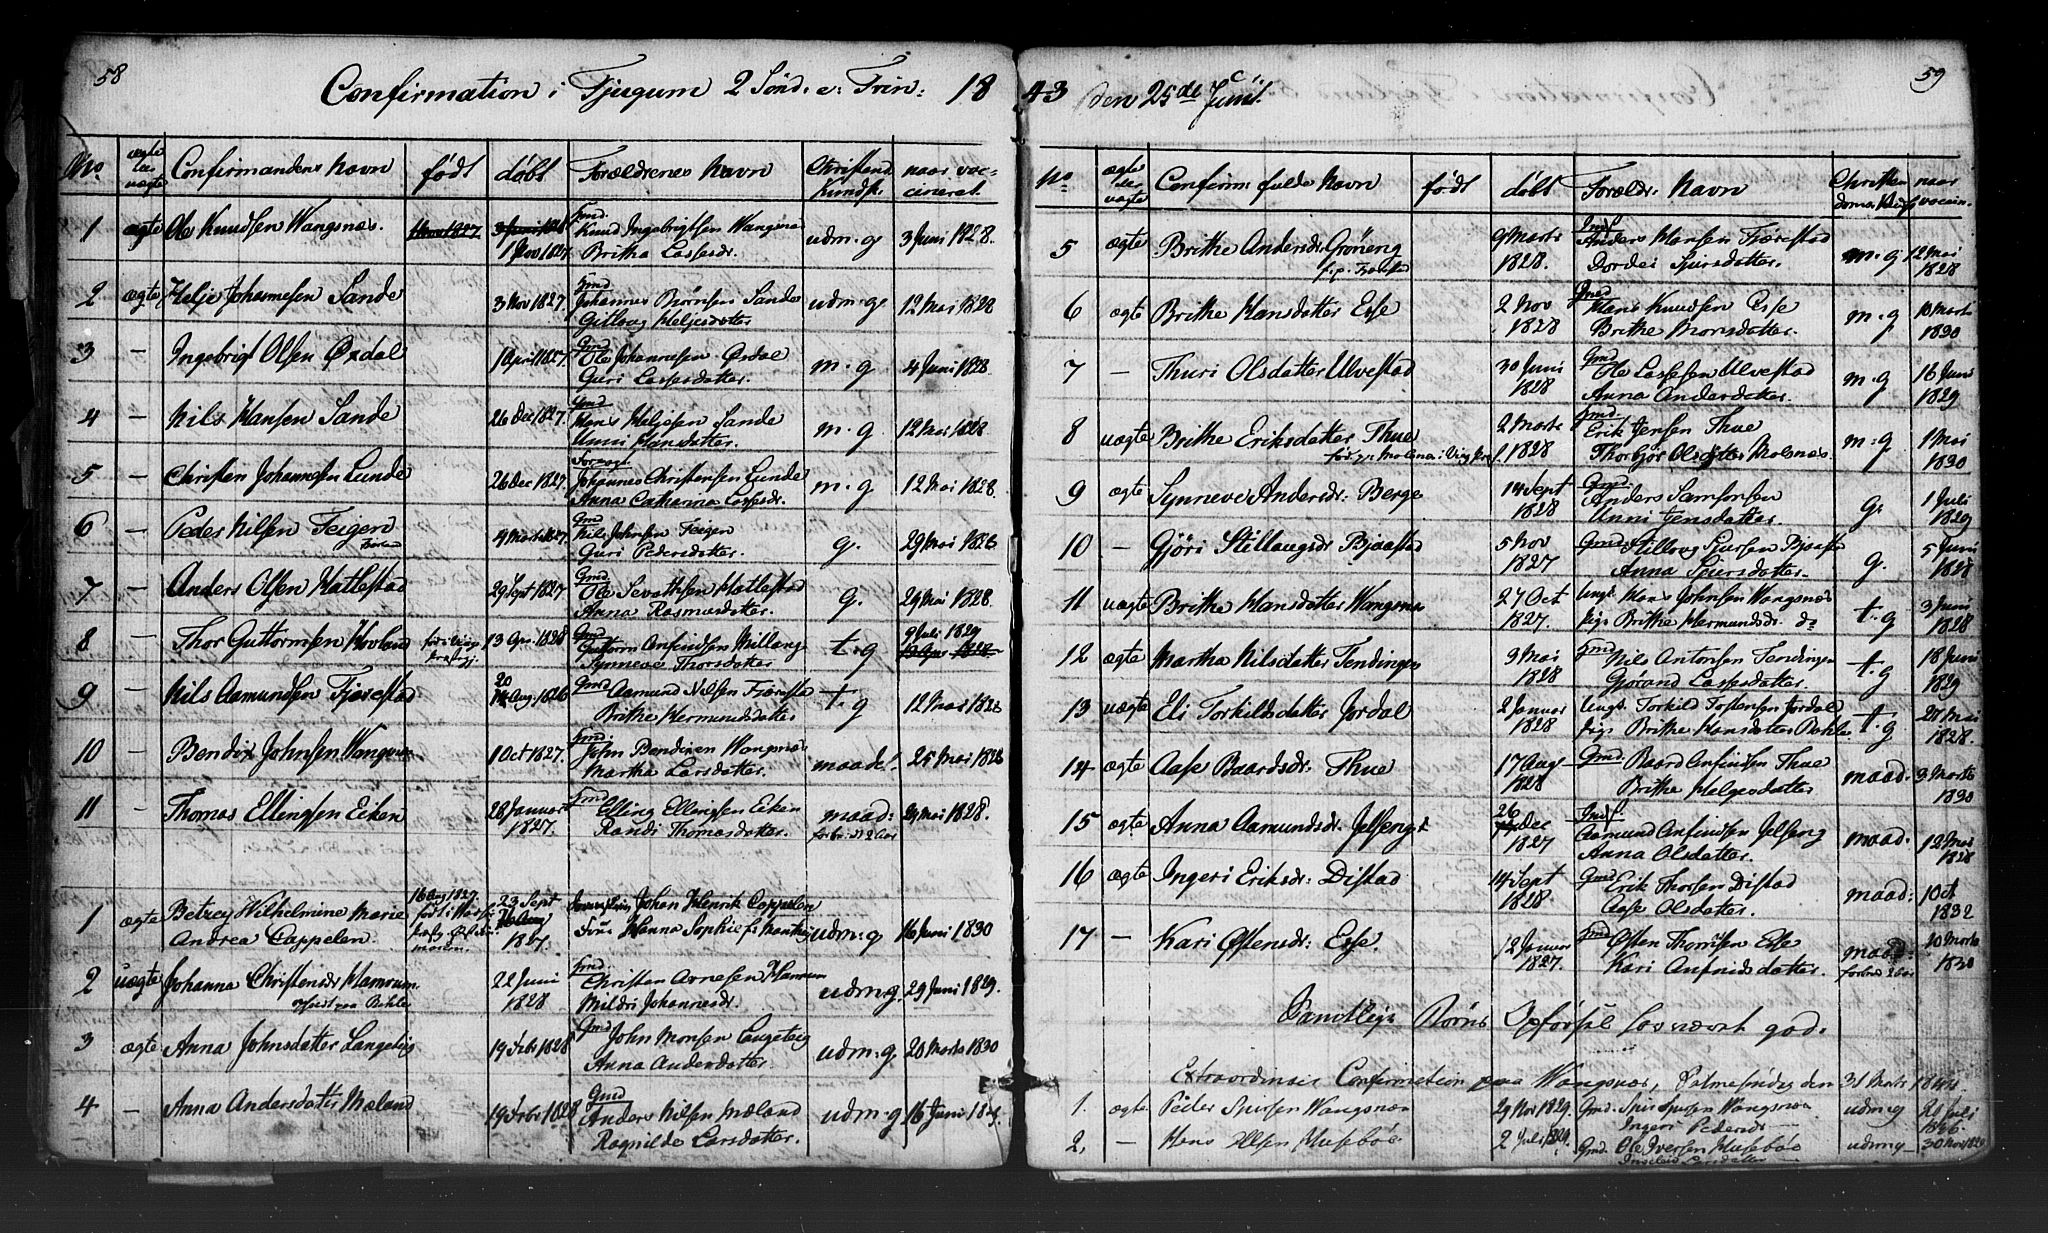 58
Confirmation i Tjugum 2 Sønd. e. Trin: 18
No ægte Confirmandens Navn født døbt Forældrenes Navn Christend. kundsk. naar vaccineret
1 ægte Ole Knudsen Wangsnæs. 3 Juni 1828 1 Nov 1827 Gmd. Knud Ingebrigtsen Wangsnæs udm. g 3 Juni 1828.
Britha Lassesdr.
2 ægte Helje Johannesen Sande 3 Nov 1827. Gmd Johannes Børnsen Sande udm. g 12 Mai 1828
Gitlaug Heljesdatter
3 — Ingebrigt Olsen Øxdal 1 April 1827 Gmd Ole Johannesen Øxdal m. g 4 Juni 1828
Guri Lassesdatter.
4 — Nils Hansen Sande 26 Dec 1827. Gmd Hans Heljesen Sande m. g 12 Mai 1828
Anni Hansdatter.
5 — Christen Johannesen Lunde 26 Dec 1827. Johannes Christensen Lunde m. g 12 Mai 1828
Anna Catharina Lassesdr.
6 — Peder Nilsen Feigen 4 Marts 1827. Gmd Nils Johnsen Feigen g. 29 Mai 1828
Guri Pedersdatter.
7 — Anders Olsen Hatlestad 29 Sept 1827 Gmd. Ole Sevathsen Hatlestad g. 29 Mai 1828
Anna Rasmusdatter.
8 — Thor Guttormsen Hovland 13 Apr. 1828 Gmd Guttorm Anfindsen t. g 9 Juli 1829
Synneve Thorsdatter
9 — Nils Aamundsen Fjærestad 20 Aug. 1826 Gmd Aamund Nilsen Fjærestad t. g 12 Mai 1828
Brithe Hermundsdatter
10 — Bendix Johnsen Wangsnæs 1 Oct 1827. Gmd. John Bendixen Wangsnæs maadel. 25 Mai 1828
Martha Larsdatter.
11 — Thomas Ellingsen Eiken 28 Januar 1827. Gmd Elling Ellingsen Eiken maad: 29 Mai 1828.
Randi Thomasdatter.
1 ægte Betzey Wilhelmine Marie 16 Aug 1827. 23 Sept Johan Henrik Cappelen
Andrea Cappelen. 1827. Frue Hanna Sophie udm. g 16 Juni 1830
2 uægte Johanna Christensdr Hamrum 22 Juni 1828 Gmd Christen Arnesen Hamrum udm. g. 29 Juni 1829.
Mildri Johannesdr.
3 ægte Anna Johnsdatter Langeteig 19 Febr 1828 Gmd John Monsen Langeteig udm. g 20 Marts 1830
Anna Andersdatter.
4 — Anna Andersdatter Mæland 19 Febr 1828 Gmd Anders Nilsen Mæland udm. g 16 Juni
Ragnilde Larsdatter.
43 den 25de Juni.
59
No ægte Confirm: fulde Navn født døbt Forældr: Navn Christendoms Kundsk. naar vaccin.
5 ægte Brithe Andersdr: Grøneng 9 Marts 1828. Anders Hansen Fjærestad m. g 12 Mai 1828
Dordei Siursdatter.
6 ægte Brithe Hansdatter Esse 2 Nov 1828 Gmd Hans Knudsen Esse m. g 10 Marts 1830
Brithe Monsdatter.
7 — Thuri Olsdatter Ulvestad 30 Juni 1828 Gmd Ole Lassesen Ulvestad m. g 16 Juni 1829
Anna Andersdatter
8 uægte Brithe Eriksdatter Thue 2 Marts 1828 Gmd Erik Jensen Thue m. g 1 Mai 1830
Thorbjør Olsdatter Molsnæs
9 ægte Synneve Andersdr: Berge 14 Sept 1828 Gmd: Anders Samsonsen g. 1 Juli 1829
Anni Jensdatter.
10 — Gjøri Stillaugsdr Bjaastad 5 Nov 1827 Gmd: Stillaug Siursen Bjaastad g. 5 Juni 1828
Anna Siursdatter.
11 uægte Brithe Hansdatter Wangsnæs 27 Oct 1827. Ungk. Hans Johnsen Wangsnæs t. g 3 Juni 1828
Pige Brithe Hermundsdr. do
12 ægte Martha Nilsdatter Tendingen 9 Mai 1828 Gmd Nils Antonsen Tendingen t. g 18 Juni 1829
Gjørand Lassesdatter.
13 uægte Eli Torkildsdatter Jordal 2 Januar 1828 Ungk. Torkild Tostensen Jordal t. g 27 Mai 1828.
Pige Brithe Hansdatter
14 ægte Aase Baardsdr: Thue 17 Aug 1828 Gmd. Baard Anfindsen Thue maad: 9 Marts 1830
Brithe Heljesdatter
15 ægte Anna Aamundsdr. 26 Dec 1827 Aamund Anfindsen maad: 12 Mai 1828
Anna Olsdatter.
16 ægte Ingeri Eriksdr: Distad 14 Sept 1828 Gmd Erik Thorsen Distad maad: 1 Oct 1832
Aase Olsdatter.
17 — Kari Østensdr: Esse. 12 Januar 1827. Gmd Østen Thorrisen Esse maad: 10 Marts 1830
Kari Anfindsdatter.
Samtlige Børns Opførsel bevnævnt god.
Extraordinair Confirmation paa Wangsnæs, den 31 Marts 1844
1. ægte Peder Siursen Wangsnæs 29 Nov 1829. Gmd. Siur Siursen Wangsnæs udm. g
Ingeri Pedersdr —
2, — Hans Olsen Husebøe 2 Juli 1829. Gmd. Ole Iversen Husebøe udm. g — 30 Nov 1829